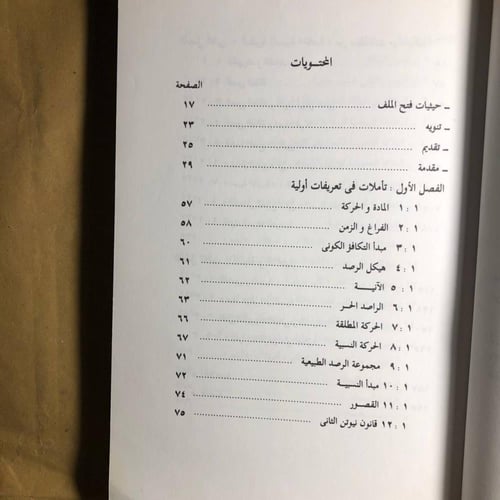 المحتويات
الصفحة
ــ حيثيات فتح الملف ........ ١٧
ــ تنويه ........ ٢٣
ــ تقديم ........ ٢٥
ــ مقدمة ........ ٢٩
الفصل الأول : تأملات فى تعريفات أولية
١ : ١ المادة و الحركة ........ ٥٧
١ : ٢ الفراغ و الزمن ........ ٥٨
١ : ٣ مبدأ التكافؤ الكونى ........ ٦٠
١ : ٤ هيكل الرصد ........ ٦١
١ : ٥ الآنيــة ........ ٦٢
١ : ٦ الراصد الحـر ........ ٦٣
١ : ٧ الحركة المطلقة ........ ٦٦
١ : ٨ الحركة النسبية ........ ٦٧
١ : ٩ مجموعة الرصد الطبيعية ........ ٧١
١ : ١٠ مبدأ النسبية ........ ٧٢
١ : ١١ القصور ........ ٧٤
١ : ١٢ قانون نيوتن الثانى ........ ٧٥